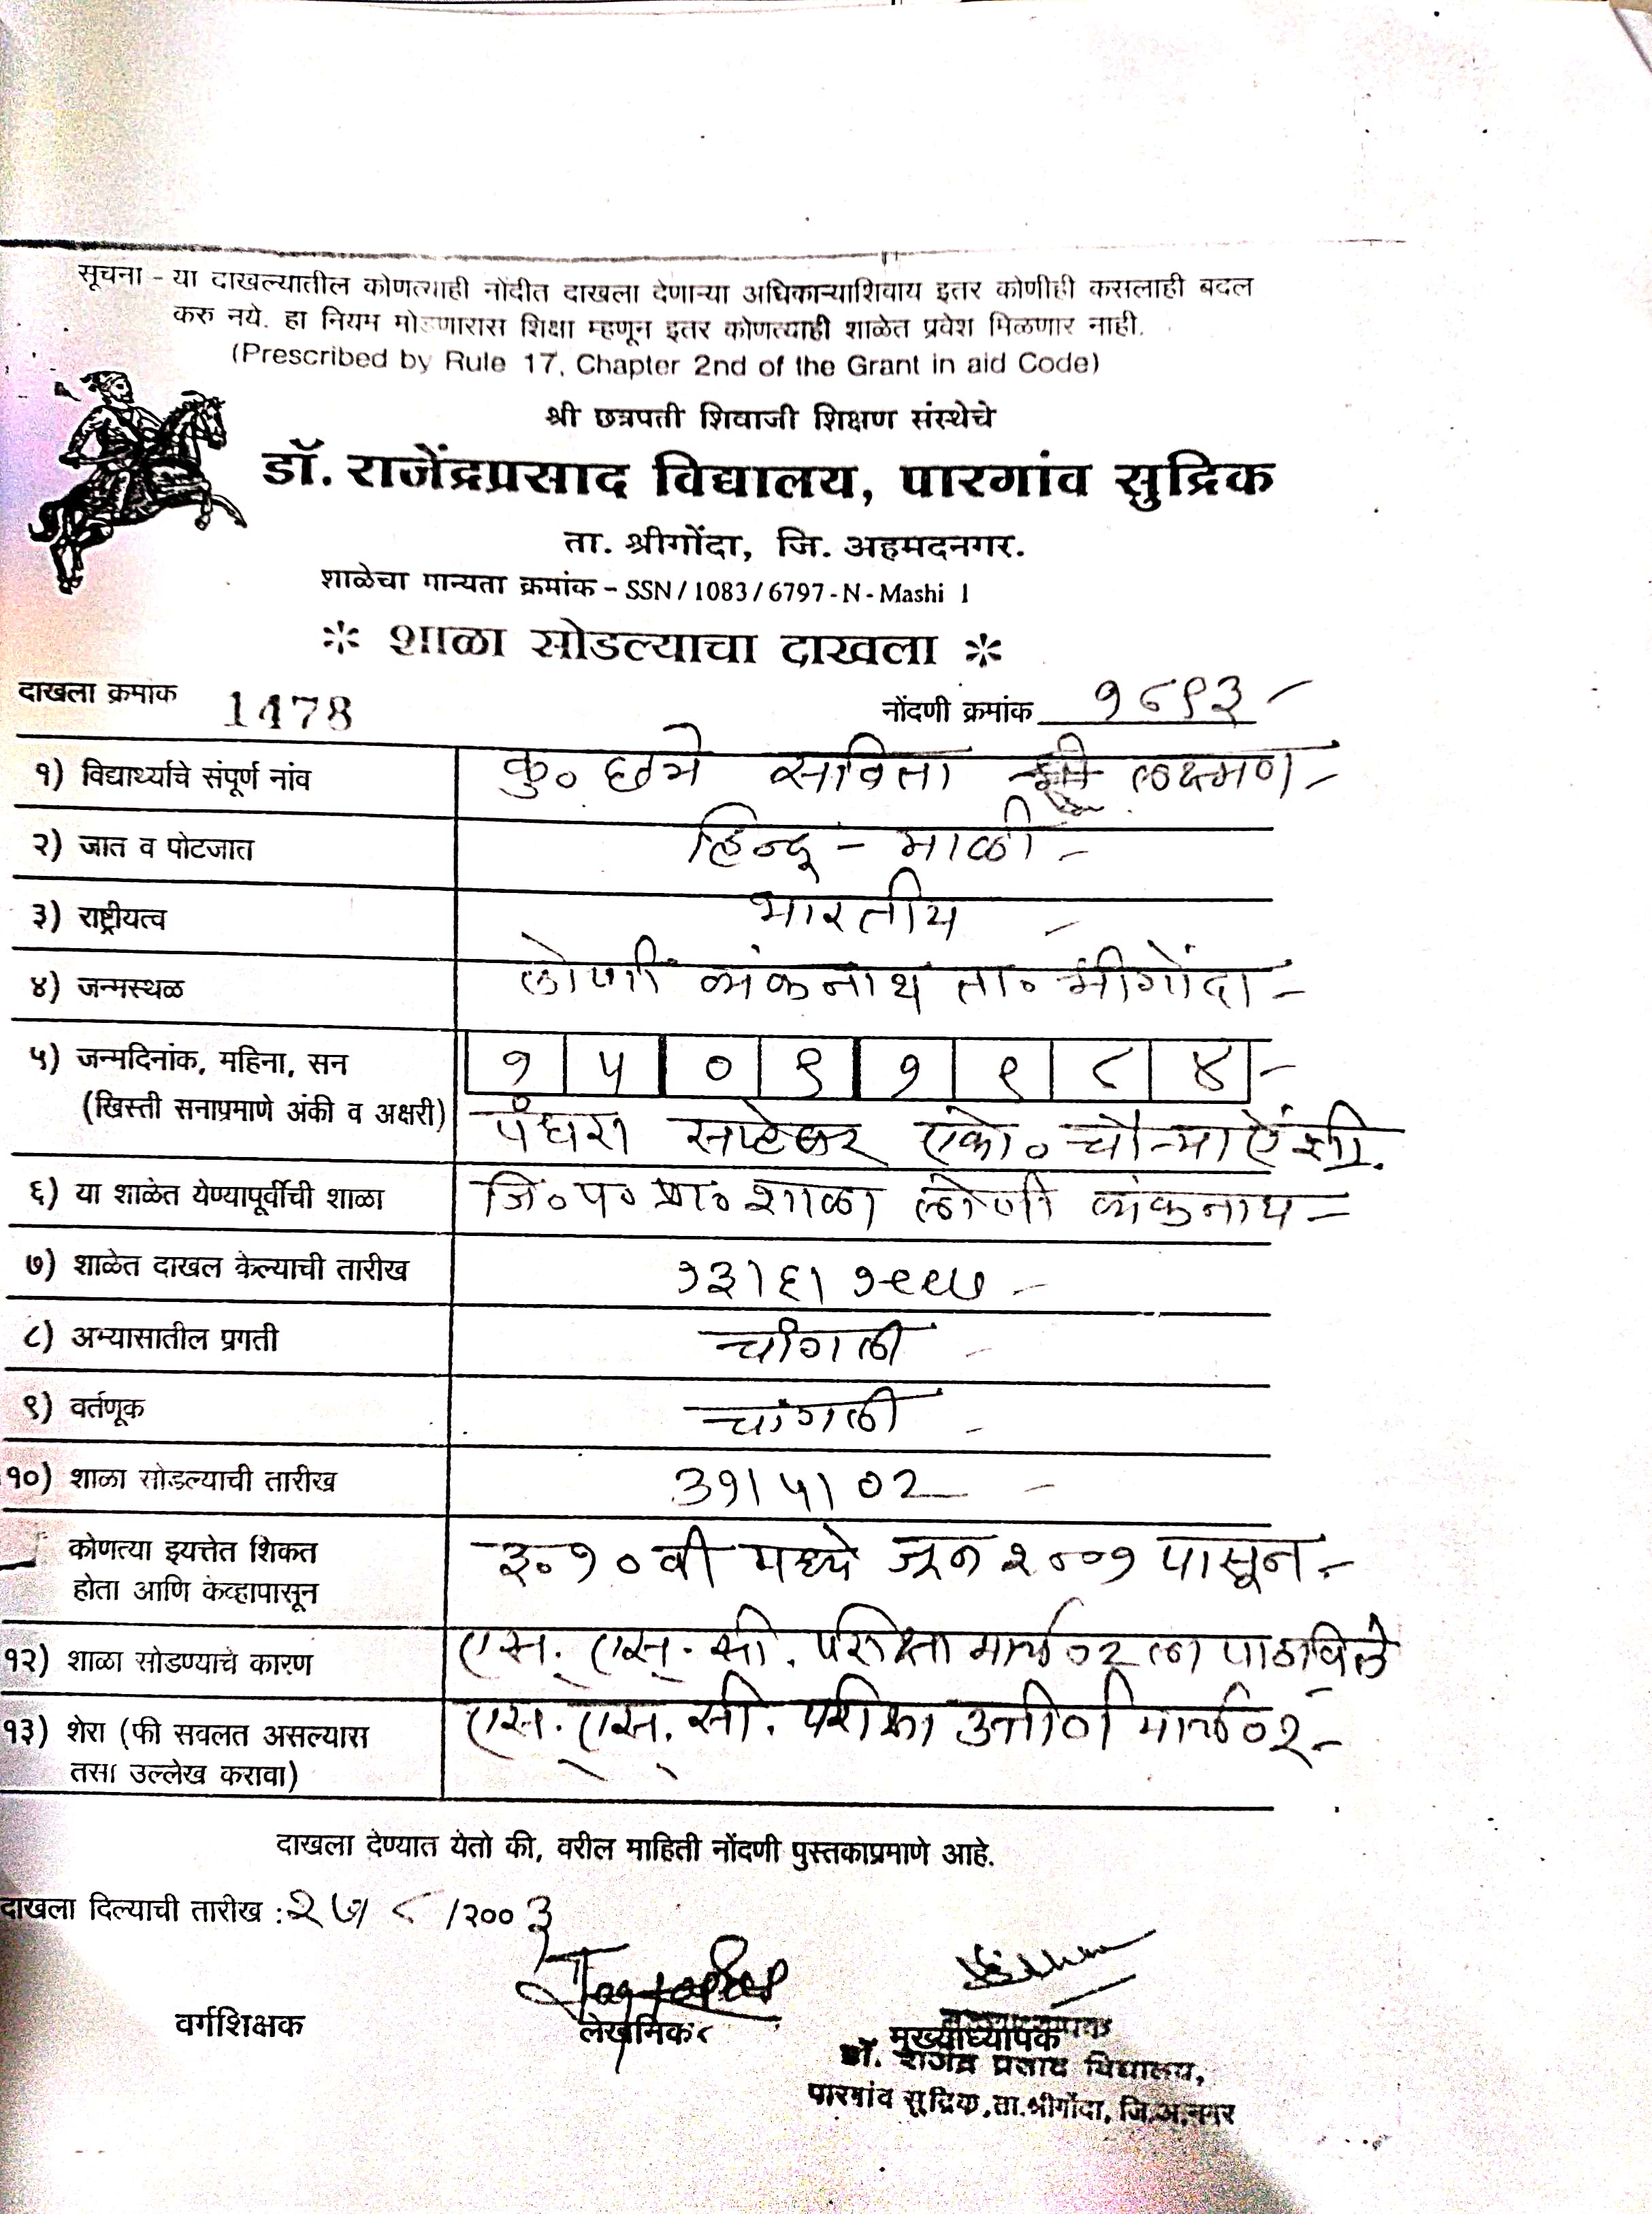 सूचना - या दाखल्यातील कोणत्याही नोंदीत दाखला देणाऱ्या अधिकाऱ्याशिवाय इतर कोणीही कसलाही बदल
करु नये. हा नियम मोडणारास शिक्षा म्हणून इतर कोणत्याही शाळेत प्रवेश मिळणार नाही.
(Prescribed by Rule 17, Chapter 2nd of the Grant in aid Code)
श्री छत्रपती शिवाजी शिक्षण संस्थेचे
डॉ. राजेंद्रप्रसाद विद्यालय, पारगांव सुद्रिक
ता. श्रीगोंदा, जि. अहमदनगर.
शाळेचा मान्यता क्रमांक - SSN / 1083 / 6797 - N - Mashi 1
* शाळा सोडल्याचा दाखला *
दाखला क्रमांक 1478 नोंदणी क्रमांक १८९३ -
१) विद्यार्थ्याचे संपूर्ण नांव कु० छत्रे सविता लक्ष्मण -
२) जात व पोटजात हिन्दू - माळी -
३) राष्ट्रीयत्व भारतीय -
४) जन्मस्थळ लोणी व्यंकनाथ ता० श्रीगोंदा -
५) जन्मदिनांक, महिना, सन १ ५ ० ९ १ ९ ८ ४ -
(खिस्ती सनाप्रमाणे अंकी व अक्षरी) पंधरा सप्टेंबर एको० चौऱ्याऐंशी.
६) या शाळेत येण्यापूर्वीची शाळा जि० प० प्रा० शाळा लोणी व्यंकनाथ -
७) शाळेत दाखल केल्याची तारीख १३।६।१९९७ -
८) अभ्यासातील प्रगती चांगली -
९) वर्तणूक चांगली -
१०) शाळा सोडल्याची तारीख ३१।५।०२ -
कोणत्या इयत्तेत शिकत इ० १० वी मध्ये जून २००१ पासून -
होता आणि केव्हापासून
१२) शाळा सोडण्याचे कारण एस. एस. सी. परीक्षा मार्च ०२ ला पाठविले
१३) शेरा (फी सवलत असल्यास एस. एस. सी. परीक्षा उत्तीर्ण मार्च ०२ -
तसा उल्लेख करावा)
दाखला देण्यात येतो की, वरील माहिती नोंदणी पुस्तकाप्रमाणे आहे.
दाखला दिल्याची तारीख : २७/८/२००३
वर्गशिक्षक लेखनिक मुख्याध्यापक
डॉ. राजेंद्र प्रसाद विद्यालय,
पारगांव सुद्रिक, ता. श्रीगोंदा, जि. अ. नगर